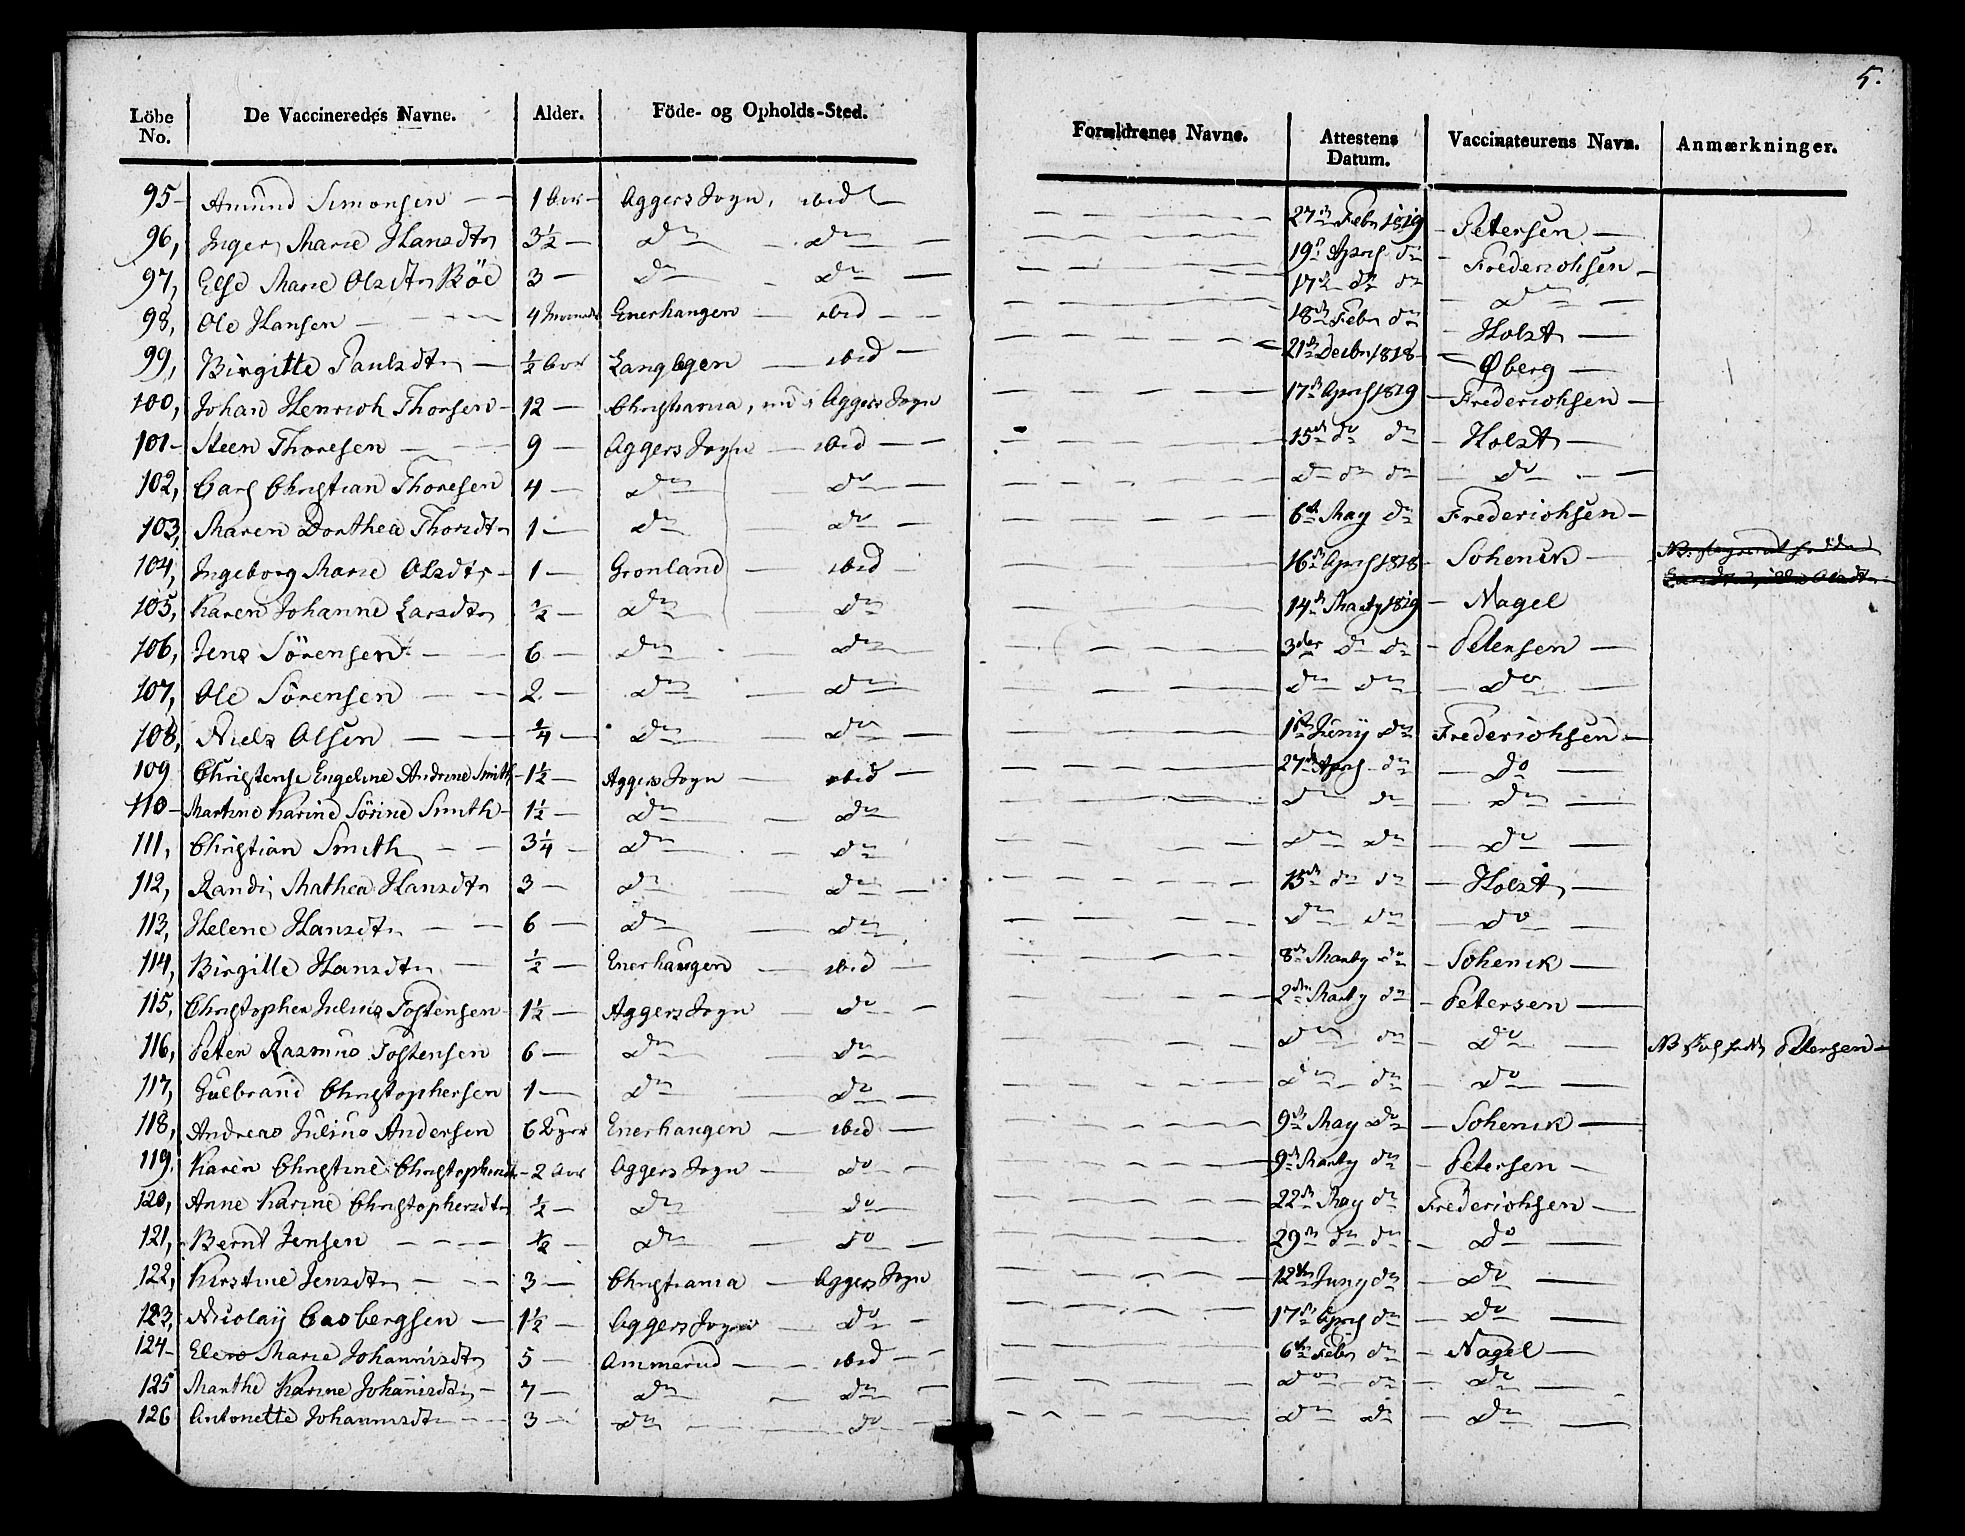 5.
Löbe No. De Vaccineredes Navne. Alder. Föde- og Opholds-Sted. Forældrenes Navne. Attestens Datum. Vaccinateurens Navn. Anmærkninger.
95 - Amund Simonsen — 1 Aar - Aggers Sogn, ibid — 27 Febr 1819 - Petersen —
96, Inger Marie Hansdtr 3½ — do — do — 19 April do - Frederichsen —
97, Else Marie Olsdtr Böe 3 — do — do — 17 do do — do —
98, Ole Hansen — 4 Enerhaugen — ibid — 18 Febr do - Holst —
99, Birgitte Paulsdtr — ½ Aar Langøgen — ibid — 21 Decbr 1818 - Øberg —
100, Johan Henrich Thorsen - 12 — Christiania, Aggers Sogn — 17 April 1819 - Frederichsen —
101 - Steen Thoresen — 9 — Aggers Sogn — ibid — 15 do do - Holst —
102, Carl Christian Thoresen 4 — do — do — do do do — do —
103, Maren Dorthea Thorsdtr 1 — do — do — 6 May do - Frederichsen —
104, Ingeborg Marie Olsdtr - 1 — Grønland — ibid — 16 April 1818 - Schenck —
105, Karen Johanne Larsdtr ½ — do — do — 14 Marty 1819 - Nagel
106, Jens Sörensen — 6 — do — do — 3 do do - Petersen —
107, Ole Sörensen — 2 — do — do — do do — do —
108, Niels Olsen — ¼ — do — do — 1 Juny do - Frederichsen —
109 Christense Engeline Andrine Smith - 1½ — Aggers Sogn — ibid — 27 April do — do —
110 - Martine Karine Sörine Smith - 1½ — do — do — do do — do —
111, Christian Smith — 3¼ — do — do — do do — do —
112, Randi Mathea Hansdtr 3 — do — do — 15 do do — Holst —
113, Helene Hansdtr — 6 — do — do — do do — do —
114, Birgitte Hansdtr — ½ — Enerhaugen — ibid — 8 Marty do — Schenck —
115, Christopher Julius Tostensen 1½ — Aggers Sogn — do — 2 Marty do - Petersen —
116, Peter Rasmus Tostensen 6 — do — do — do do — do — NB Petersen —
117, Gulbrand Christophersen 1 — do — do — do do — do —
118, Andreas Julius Andersen 6 Uger Enerhaugen — ibid — 9 May do — Schenck —
119, Karen Christine Christophersdtr - 2 Aar Aggers Sogn — do — 9 Marty do - Petersen —
120, Anne Karine Christophersdtr ½ — do — do — 22 May do Frederichsen —
121, Bernt Jensen — ½ — do — do — 29 do do — do —
122, Kirstine Jensdtr — 3 — Christiania — Aggers Sogn — 12 Juny do — do —
123, Nicolay Casbergsen — 1½ — Aggers Sogn — do — 17 April do — do —
124 - Marie Johannisdtr 5 — Ammerud — ibid — 6 Febr do — Nagel —
125 Marthe Karine Johannisdtr - 7 — do — do — do do — do —
126 Antonette Johannisdtr — 3 — do — do — do do — do —